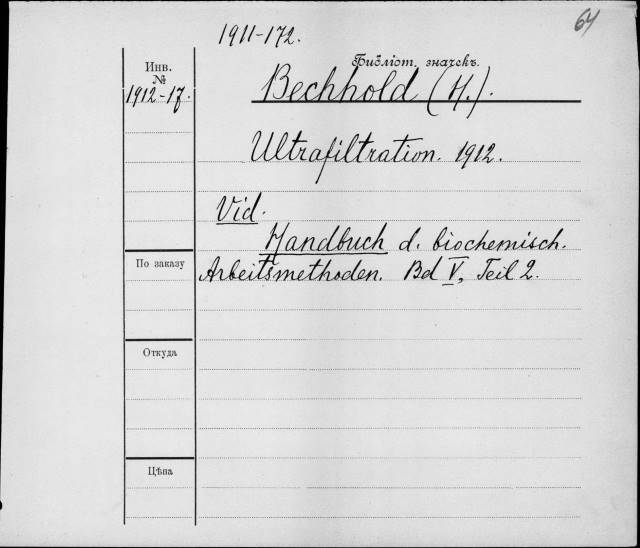 64
1911-172.
Инв.
№
Библіот. значекъ.
1912-17.
Bechhold (H.).
Ultrafiltration. 1912.
Vid.
Handbuch d. biochemisch.
По заказу
Arbeitsmethoden. Bd V, Teil 2.
Откуда
Цѣна